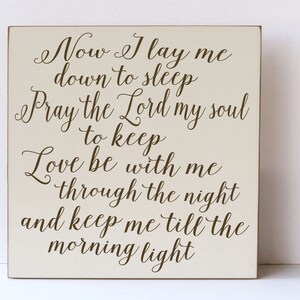 Now I lay me
down to sleep
Pray the Lord my soul
to keep
Love be with me
through the night
and keep me till the
morning light